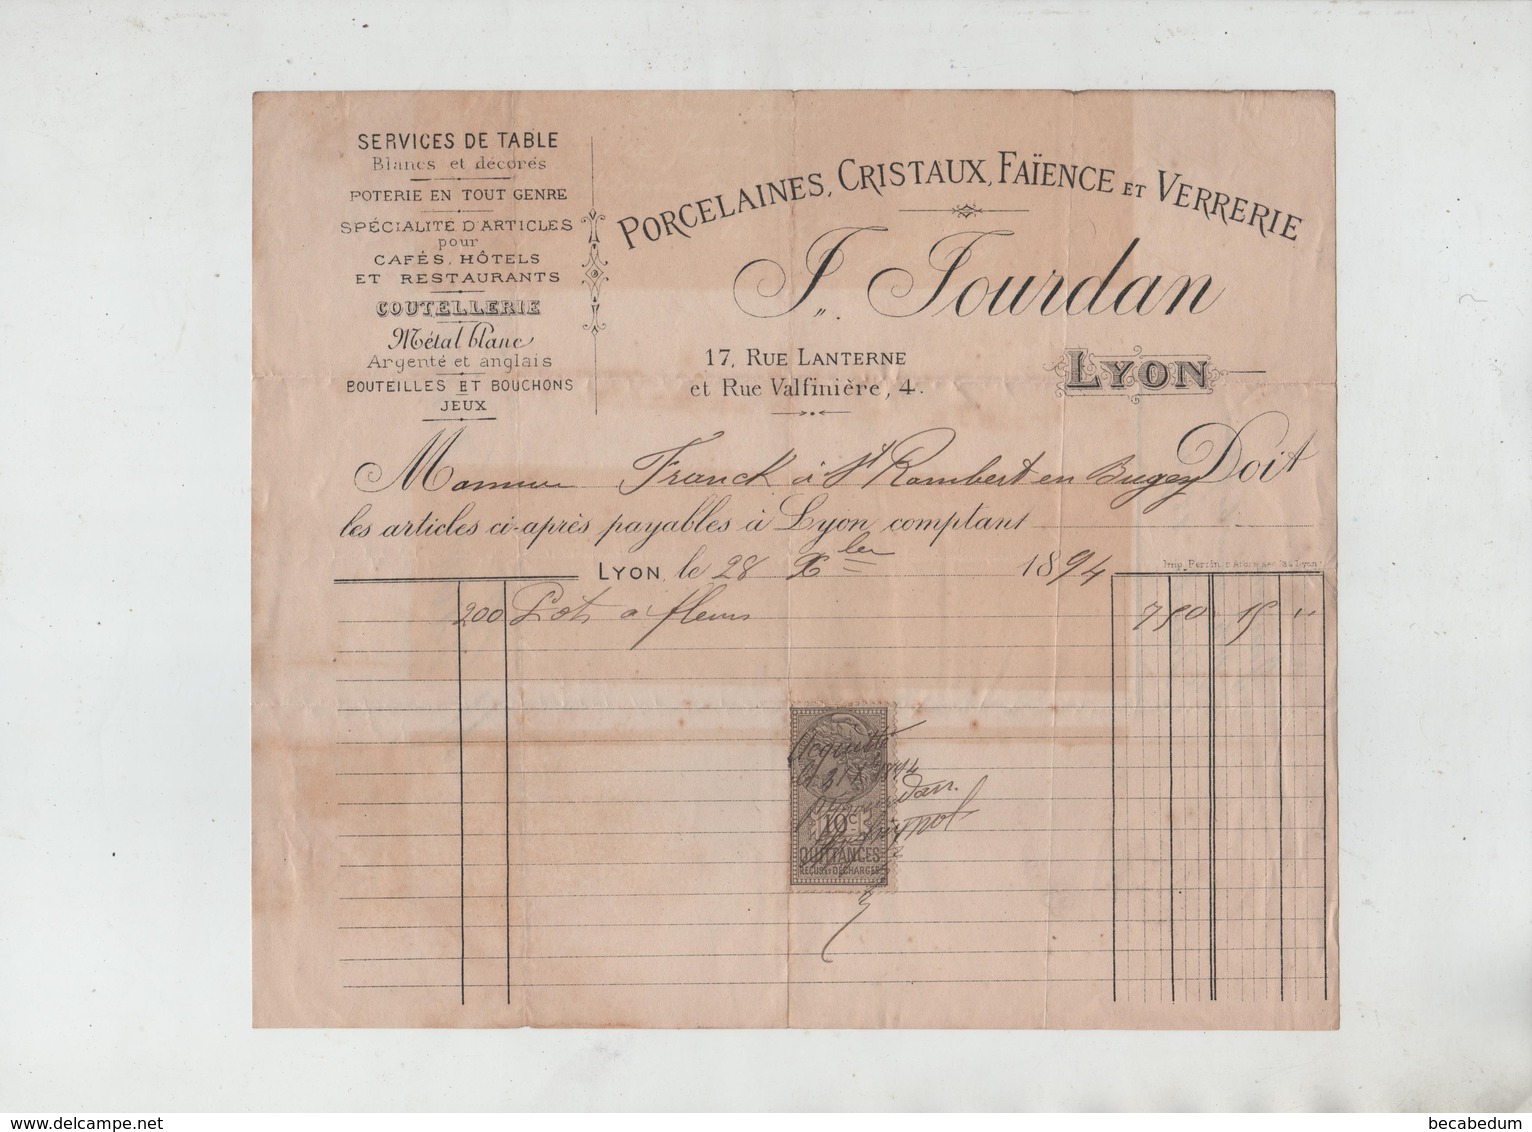 SERVICES DE TABLE
Blancs et décorés
POTERIE EN TOUT GENRE
SPÉCIALITÉ D'ARTICLES
pour
CAFÉS, HÔTELS
ET RESTAURANTS
COUTELLERIE
Métal blanc
Argenté et anglais
BOUTEILLES ET BOUCHONS
JEUX
PORCELAINES, CRISTAUX, FAÏENCE ET VERRERIE
J. Jourdan
17, RUE LANTERNE
et Rue Valfinière, 4.
LYON
Monsieur Franck à St Rambert en Bugey Doit
les articles ci-après payables à Lyon comptant
LYON, le 28 Xbre 1894
200 Pots a fleurs 7 50 15 "
Acquitté
le 31 Xbre 1894
Jourdan
10c
QUITTANCES
REÇUS ET DÉCHARGES
becabedum